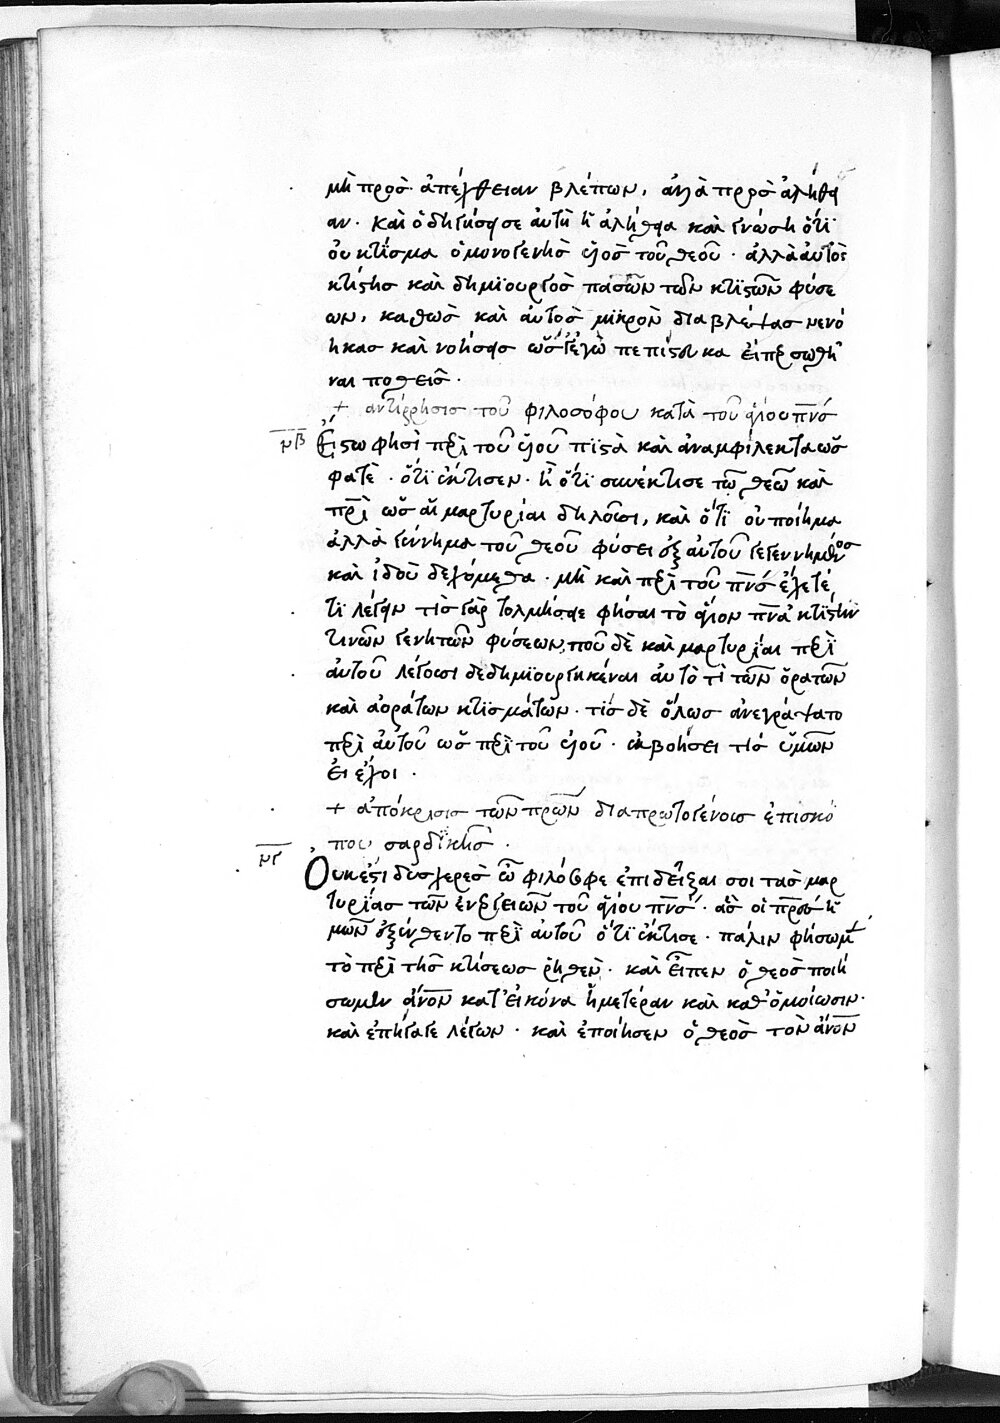 μὴ πρὸς ἀπέχθειαν βλέπων, ἀλλὰ πρὸς ἀλήθει
αν· καὶ ὁδηγήσει σε αὐτὴ ἡ ἀλήθεια καὶ γνώση ὅτι
οὐ κτίσμα ὁ μονογενὴς υἱὸς τοῦ θεοῦ· ἀλλὰ αὐτὸς
κτίστης καὶ δημιουργὸς πασῶν τῶν κτιστῶν φύσε
ων, καθὼς καὶ αὐτὸς μικρὸν διαβλέψας νενό
ηκας καὶ νοήσας ὥς γε ἐγὼ πέπιστευκα εἵπερ σωθῆ
ναι ποθεῖς·
+ ἀντίρρησις τοῦ φιλοσόφου κατὰ τοῦ ἁγίου πν̅ς
μ̅β̅ Ἔστω φησὶ περὶ τοῦ υἱοῦ πιστὰ καὶ ἀναμφίλεκτα ὡς
φατὲ· ὅτι ἔκτισεν· ἢ ὅτι συνέκτισε τῷ θεῷ καὶ
πρὶ ὡς αἱ μαρτυρίαι δηλοῦσι, καὶ ὅτι οὐ ποίημα
ἀλλὰ γέννημα τοῦ θεοῦ φύσει ἐξ αὐτοῦ γεγεννημένος
καὶ ἰδοὺ δεχόμεθα· μὴ καὶ περὶ τοῦ πν̅ς ἔχετέ
τι λέγειν τὶς γὰρ τολμήσειε φῆσαι τὸ ἅγιον πν̅α κτίστην
τινῶν γενητῶν φύσεων, ποῦ δὲ καὶ μαρτυρίαι περὶ
αὐτοῦ λέγουσι δεδημιουργηκέναι αὐτὸ τὶ τῶν ὁρατῶν
καὶ ἀοράτων κτισμάτων· τίς δὲ ὅλως ἀνεγράψατο
περὶ αὐτοῦ ὡς περὶ τοῦ υἱοῦ· ἐκβοήσει τίς ὑμῶν
εἰ ἔχοι·
+ ἀπόκρισις τῶν πρ̅ων διὰ πρωτογένους ἐπισκό
που σαρδικῆς·
μ̅γ̅ Οὐκ ἔστι δυσχερὲς ὦ φιλόσοφε ἐπιδεῖξαι σοι τὰς μαρ
τυρίας τῶν ἐνεργειῶν τοῦ ἁγίου πν̅ς· ἃς οἱ πρ̅ες ἡ
μῶν ἐξέθεντο περὶ αὐτοῦ ὅτι ἔκτισε· πάλιν φήσωμεν
τὸ περὶ τῆς κτίσεως ῥηθὲν· καὶ εἶπεν ὁ θεὸς ποιή
σωμεν ἄν̅ον κατ' εἰκόνα ἡμετέραν καὶ καθ' ὁμοίωσιν·
καὶ ἐπήγαγε λέγων· καὶ ἐποίησεν ὁ θεὸς τὸν ἄν̅ον